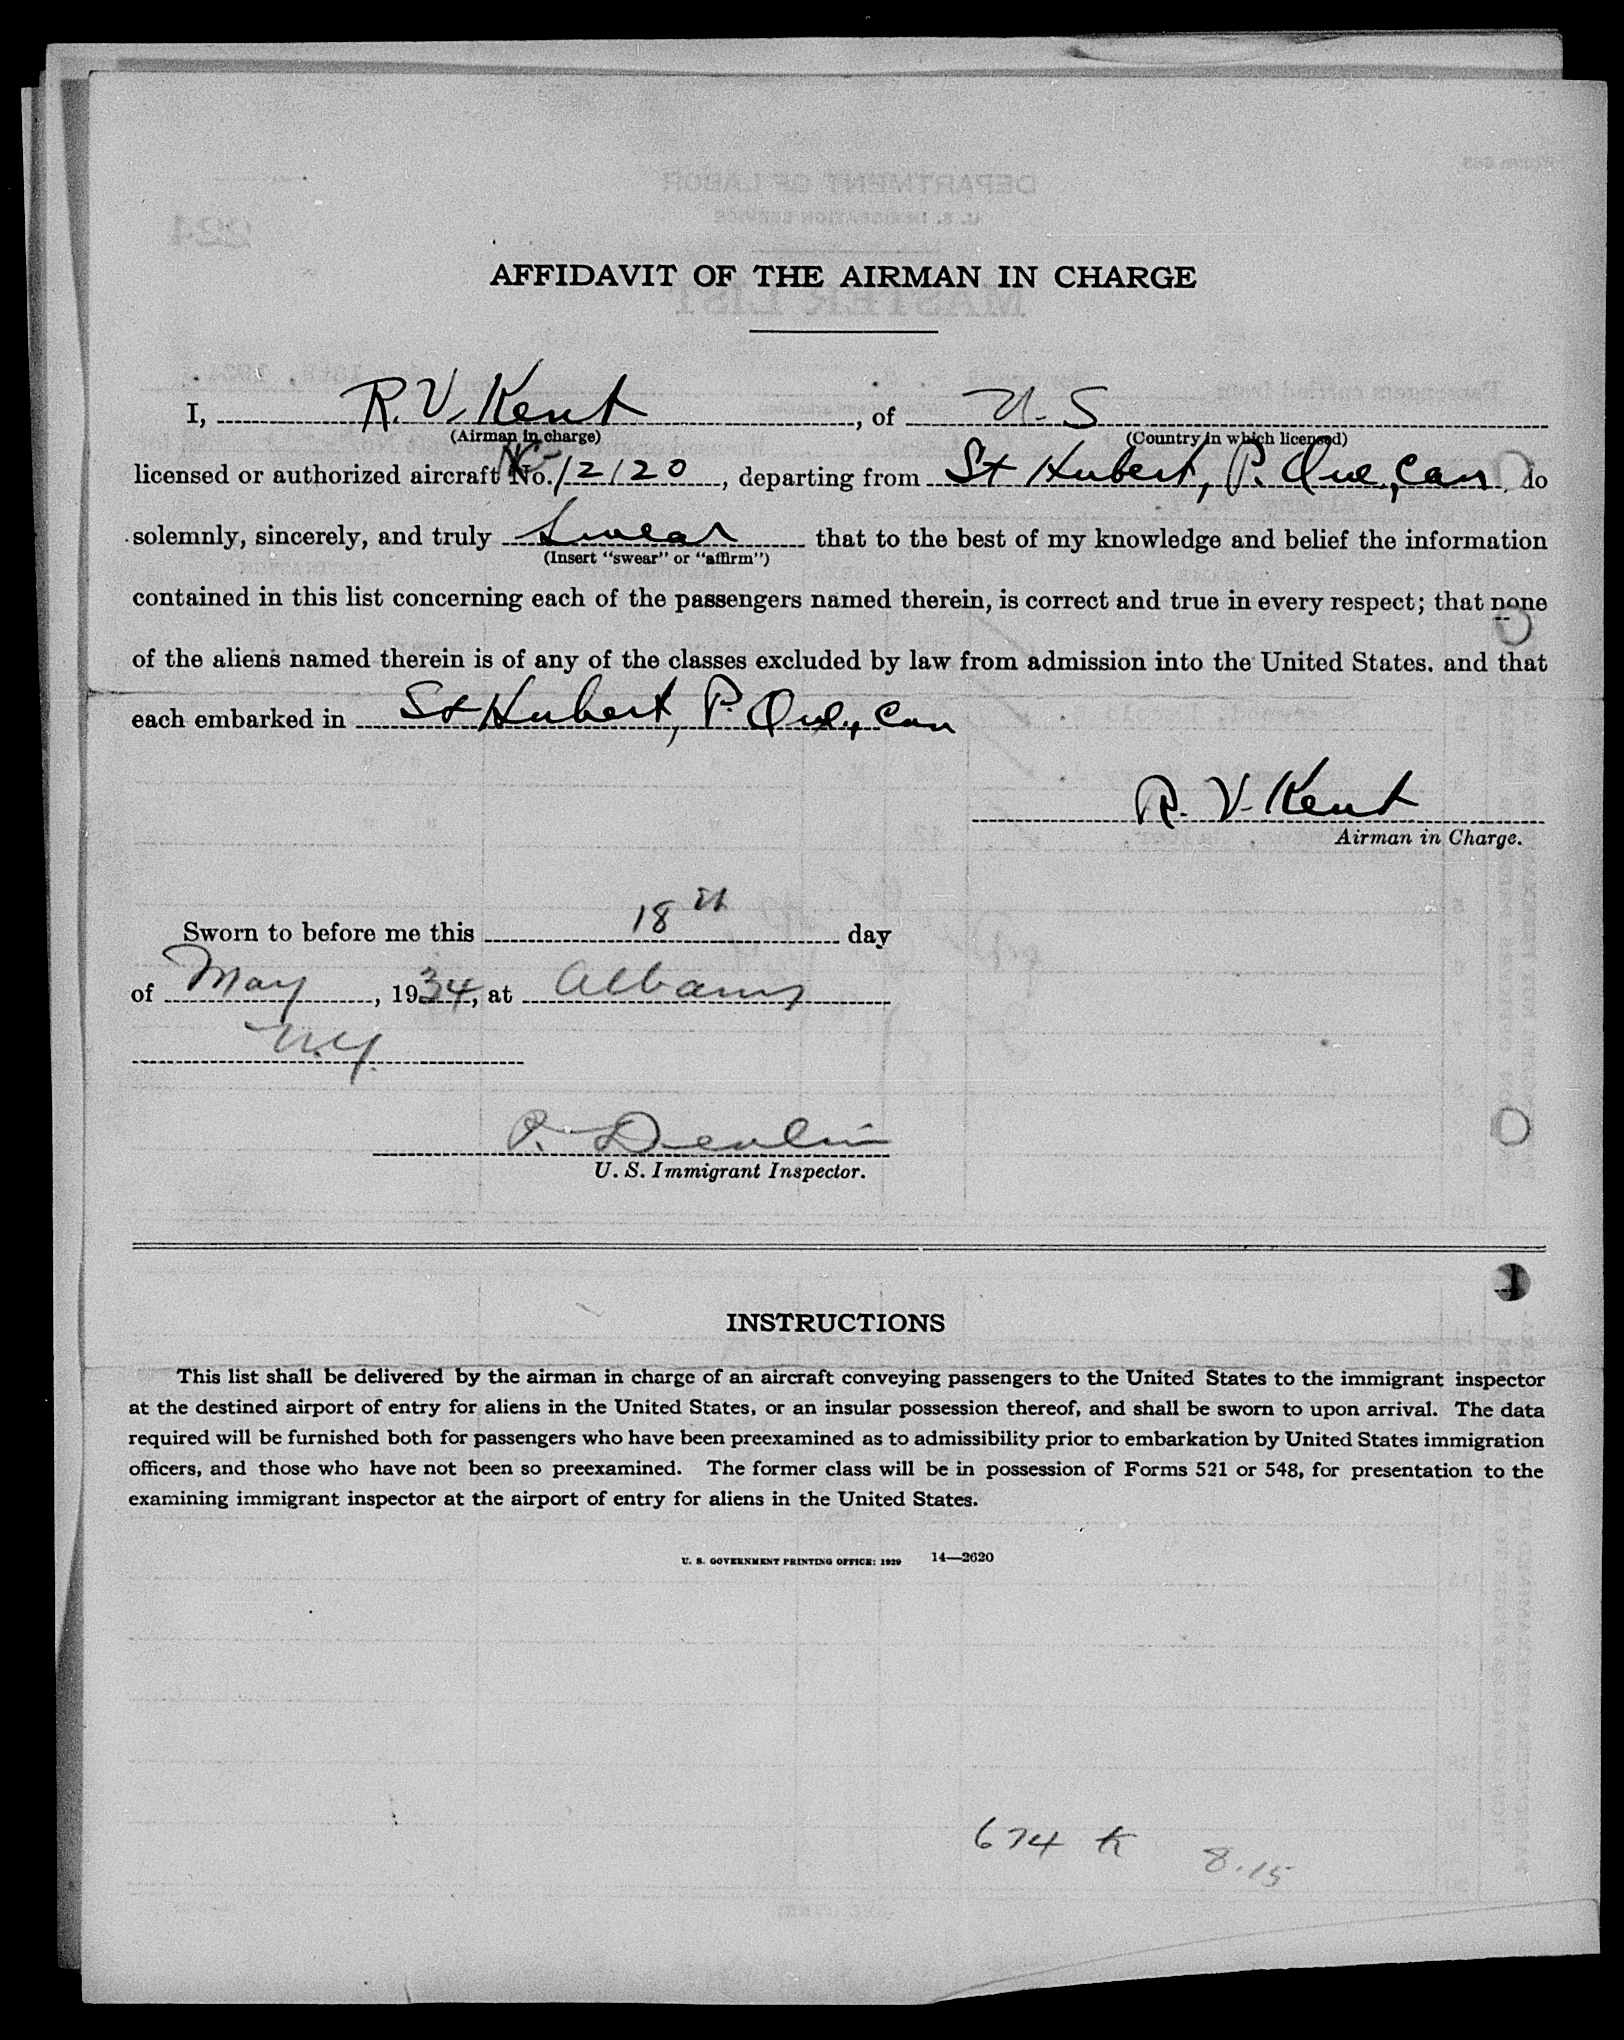 AFFIDAVIT OF THE AIRMAN IN CHARGE
I, R. V. Kent, of U. S.
(Airman in charge) (Country in which licensed)
licensed or authorized aircraft No. NC-12120, departing from St Hubert, P. Que., Can, do
solemnly, sincerely, and truly Swear that to the best of my knowledge and belief the information
(Insert "swear" or "affirm")
contained in this list concerning each of the passengers named therein, is correct and true in every respect; that none
of the aliens named therein is of any of the classes excluded by law from admission into the United States. and that
each embarked in St Hubert, P. Que., Can
R. V. Kent
Airman in Charge.
Sworn to before me this 18th day
of May, 1934, at Albany
N.Y.
P. Devlin
U. S. Immigrant Inspector.
INSTRUCTIONS
This list shall be delivered by the airman in charge of an aircraft conveying passengers to the United States to the immigrant inspector
at the destined airport of entry for aliens in the United States, or an insular possession thereof, and shall be sworn to upon arrival. The data
required will be furnished both for passengers who have been preexamined as to admissibility prior to embarkation by United States immigration
officers, and those who have not been so preexamined. The former class will be in possession of Forms 521 or 548, for presentation to the
examining immigrant inspector at the airport of entry for aliens in the United States.
U. S. GOVERNMENT PRINTING OFFICE: 1929 14—2620
674 K 8.15